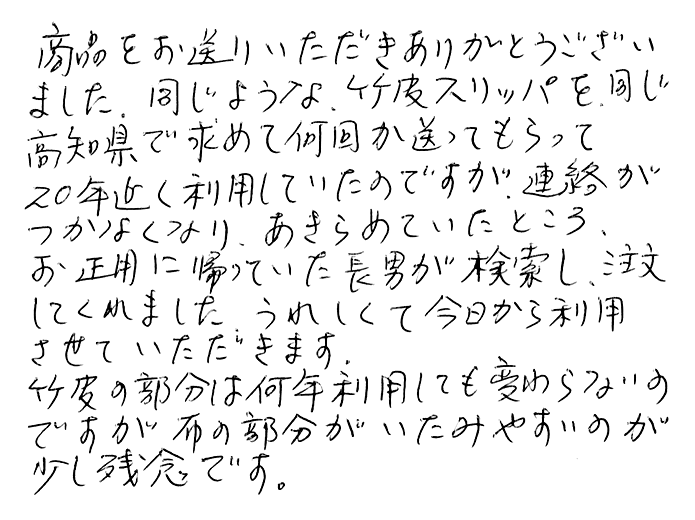 商品をお送りいただきありがとうござい
ました。同じような、竹皮スリッパを、同じ
高知県で求めて何回か送ってもらって
20年近く利用していたのですが、連絡が
つかなくなり、あきらめていたところ、
お正月に帰っていた長男が検索し、注文
してくれました。うれしくて今日から利用
させていただきます。
竹皮の部分は何年利用しても変わらないの
ですが布の部分がいたみやすいのが
少し残念です。